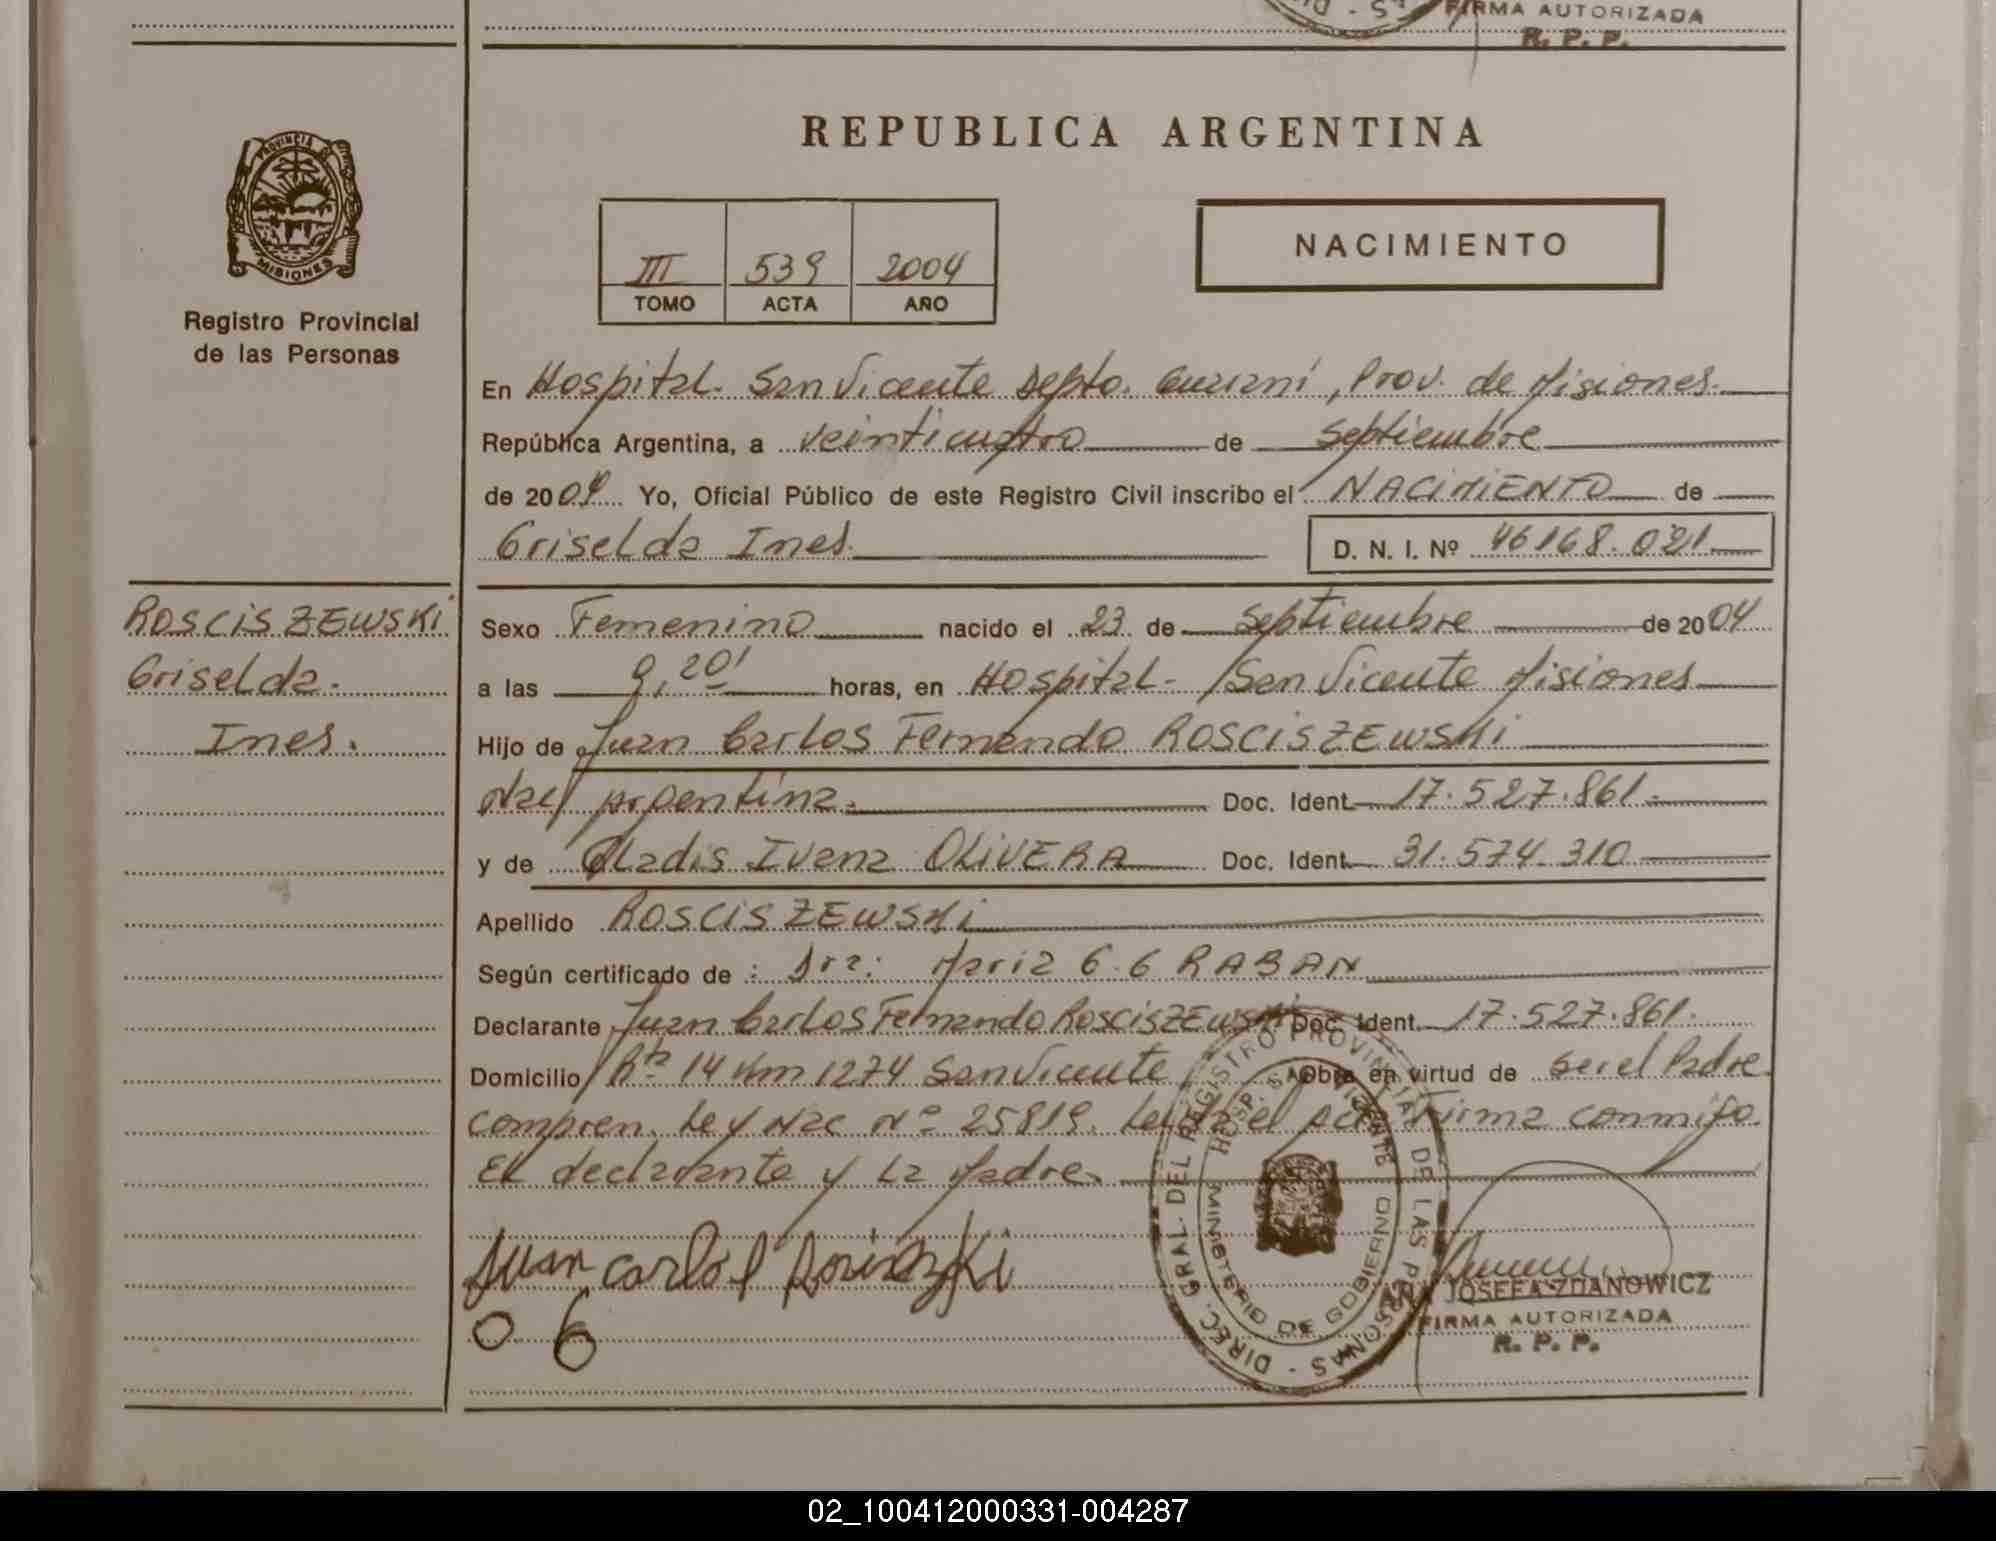 FIRMA AUTORIZADA
R. P. P.
PROVINCIA DE
MISIONES
Registro Provincial
de las Personas
REPUBLICA ARGENTINA
III 539 2004
TOMO ACTA AÑO
NACIMIENTO
En Hospital - San Vicente Depto. Guaraní, Prov. de Misiones.
República Argentina, a veinticuatro de Septiembre
de 2004 Yo, Oficial Público de este Registro Civil inscribo el NACIMIENTO de
Griselda Ines D. N. I. Nº 46168.021
ROSCISZEWSKI
Griselda.
Ines.
Sexo Femenino nacido el 23 de Septiembre de 2004
a las 9,20' horas, en Hospital - San Vicente Misiones
Hijo de Juan Carlos Fernando ROSCISZEWSKI
Nac/ Argentina. Doc. Ident. 17.527.861.
y de Gladis Ivana OLIVERA Doc. Ident. 31.574.310
Apellido ROSCISZEWSKI
Según certificado de : Dra: Maria G. G RABAN
Declarante Juan Carlos Fernando ROSCISZEWSKI Doc. Ident. 17.527.861.
Domicilio Rta 14 Km 1274 San Vicente Obra en virtud de ser el Padre
compren. Ley Nac Nº 25819. Leida el acta Firma conmigo.
El declarante y La Madre.
Juan carlos
O G
DIREC. GRAL. DEL REGISTRO PROVINCIAL DE LAS PERSONAS
HOSP. SAN VICENTE
MINISTERIO DE GOBIERNO
ANA JOSEFA ZDANOWICZ
FIRMA AUTORIZADA
R. P. P.
02_100412000331-004287